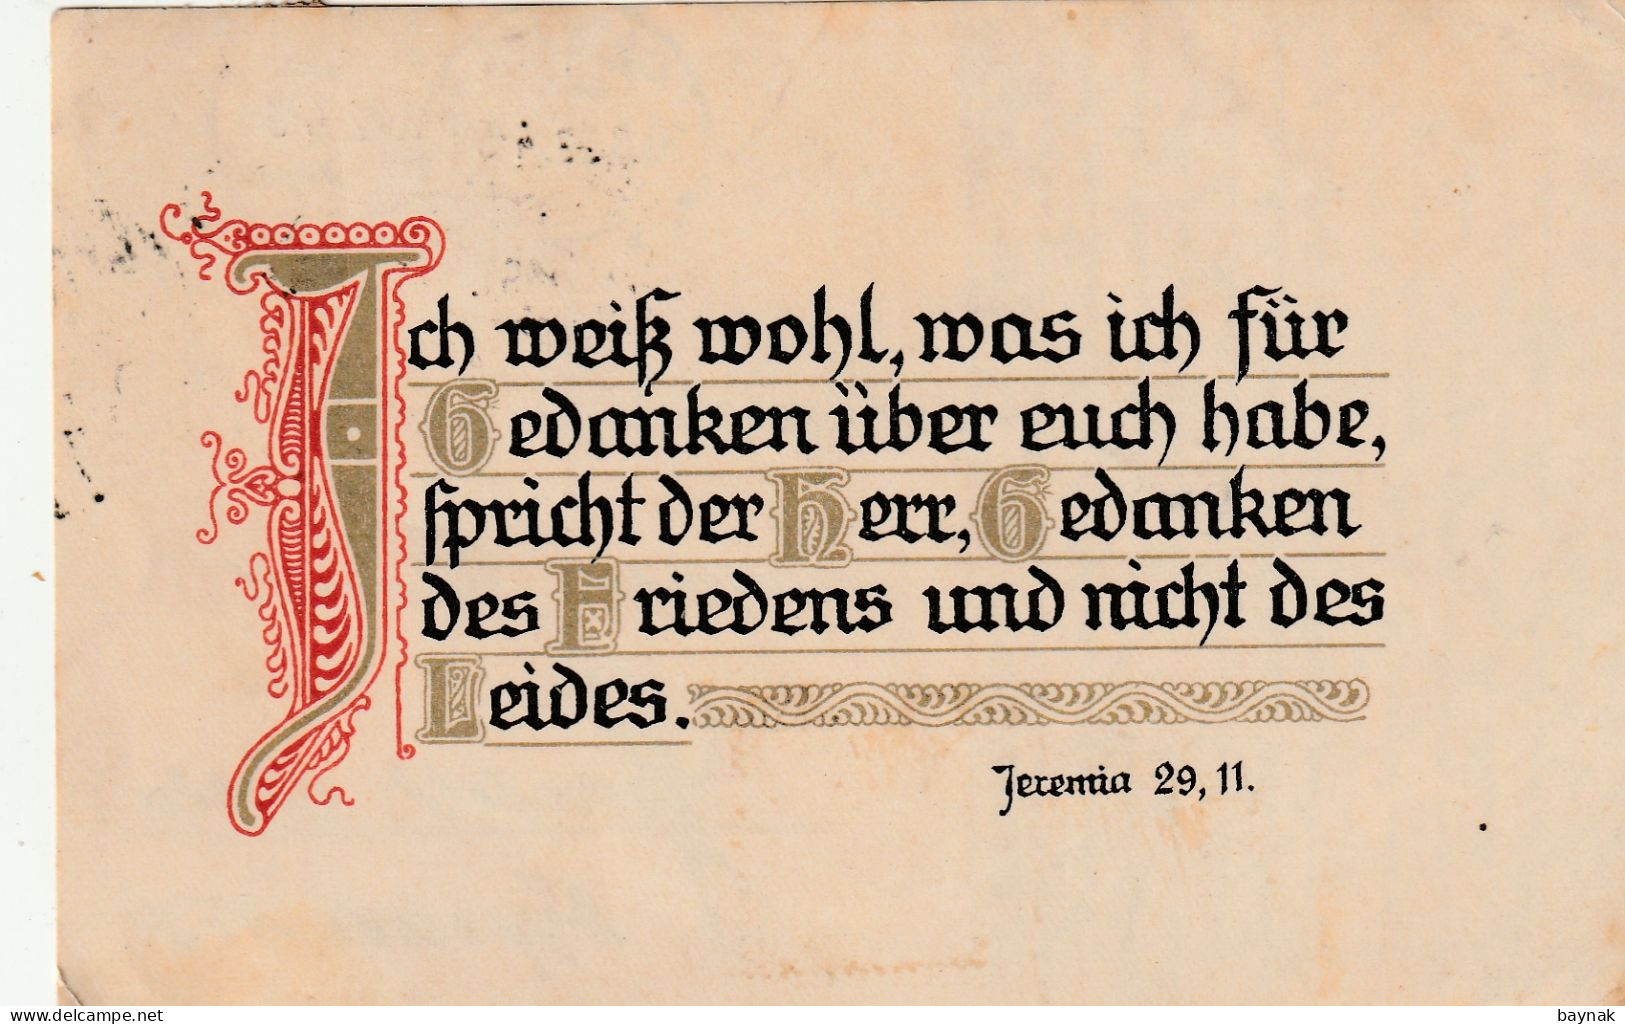 Ich weiß wohl, was ich für
Gedanken über euch habe,
spricht der Herr, Gedanken
des Friedens und nicht des
Leides.
Jeremia 29, 11.
www.delcampe.net
baynak